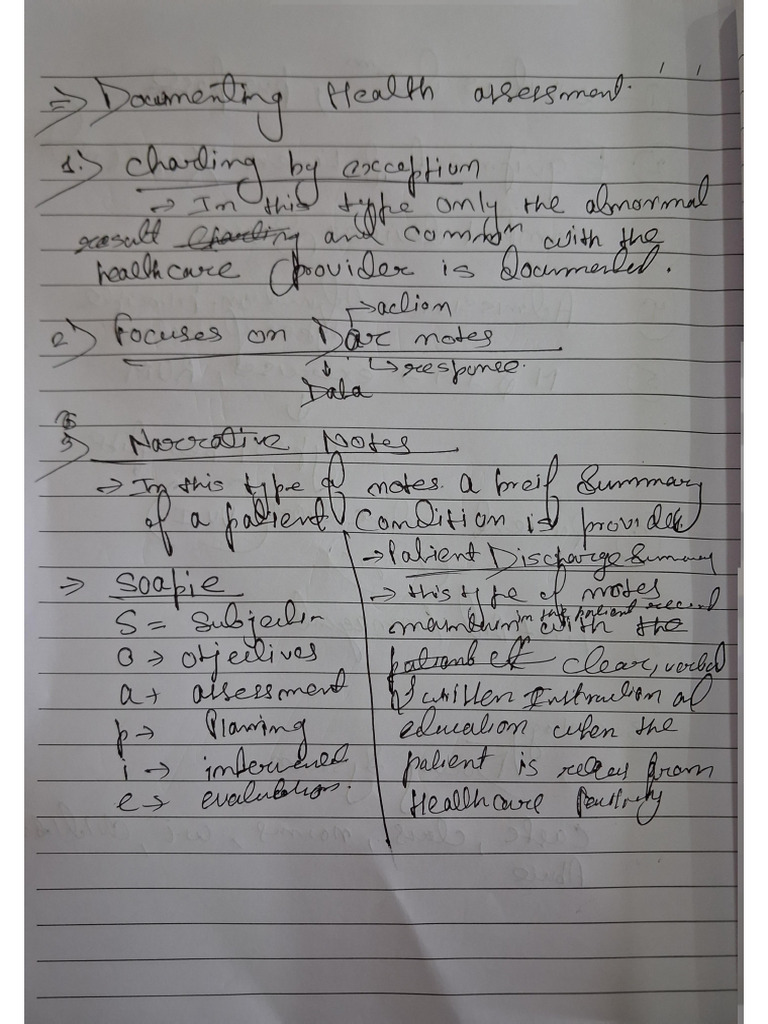 => Documenting Health assessment.
1.) Charting by exception
→ In this type only the abnormal
result and common with the
healthcare provider is Documented.
2) Focuses on Dar notes
→ action
↳ response.
↓ Data
3) Narrative Notes
→ In this type of notes a breif Summary
of a patient condition is provided
=> Soapie
S = Subjectiv
O → objectives
a → assessment
p → Planning
i →
e → evaluation.
→ Patient Discharge Summary
→ this type of notes
in the patient record
with
clear, verbal
& written Instruction
education when the
patient is from
Healthcare